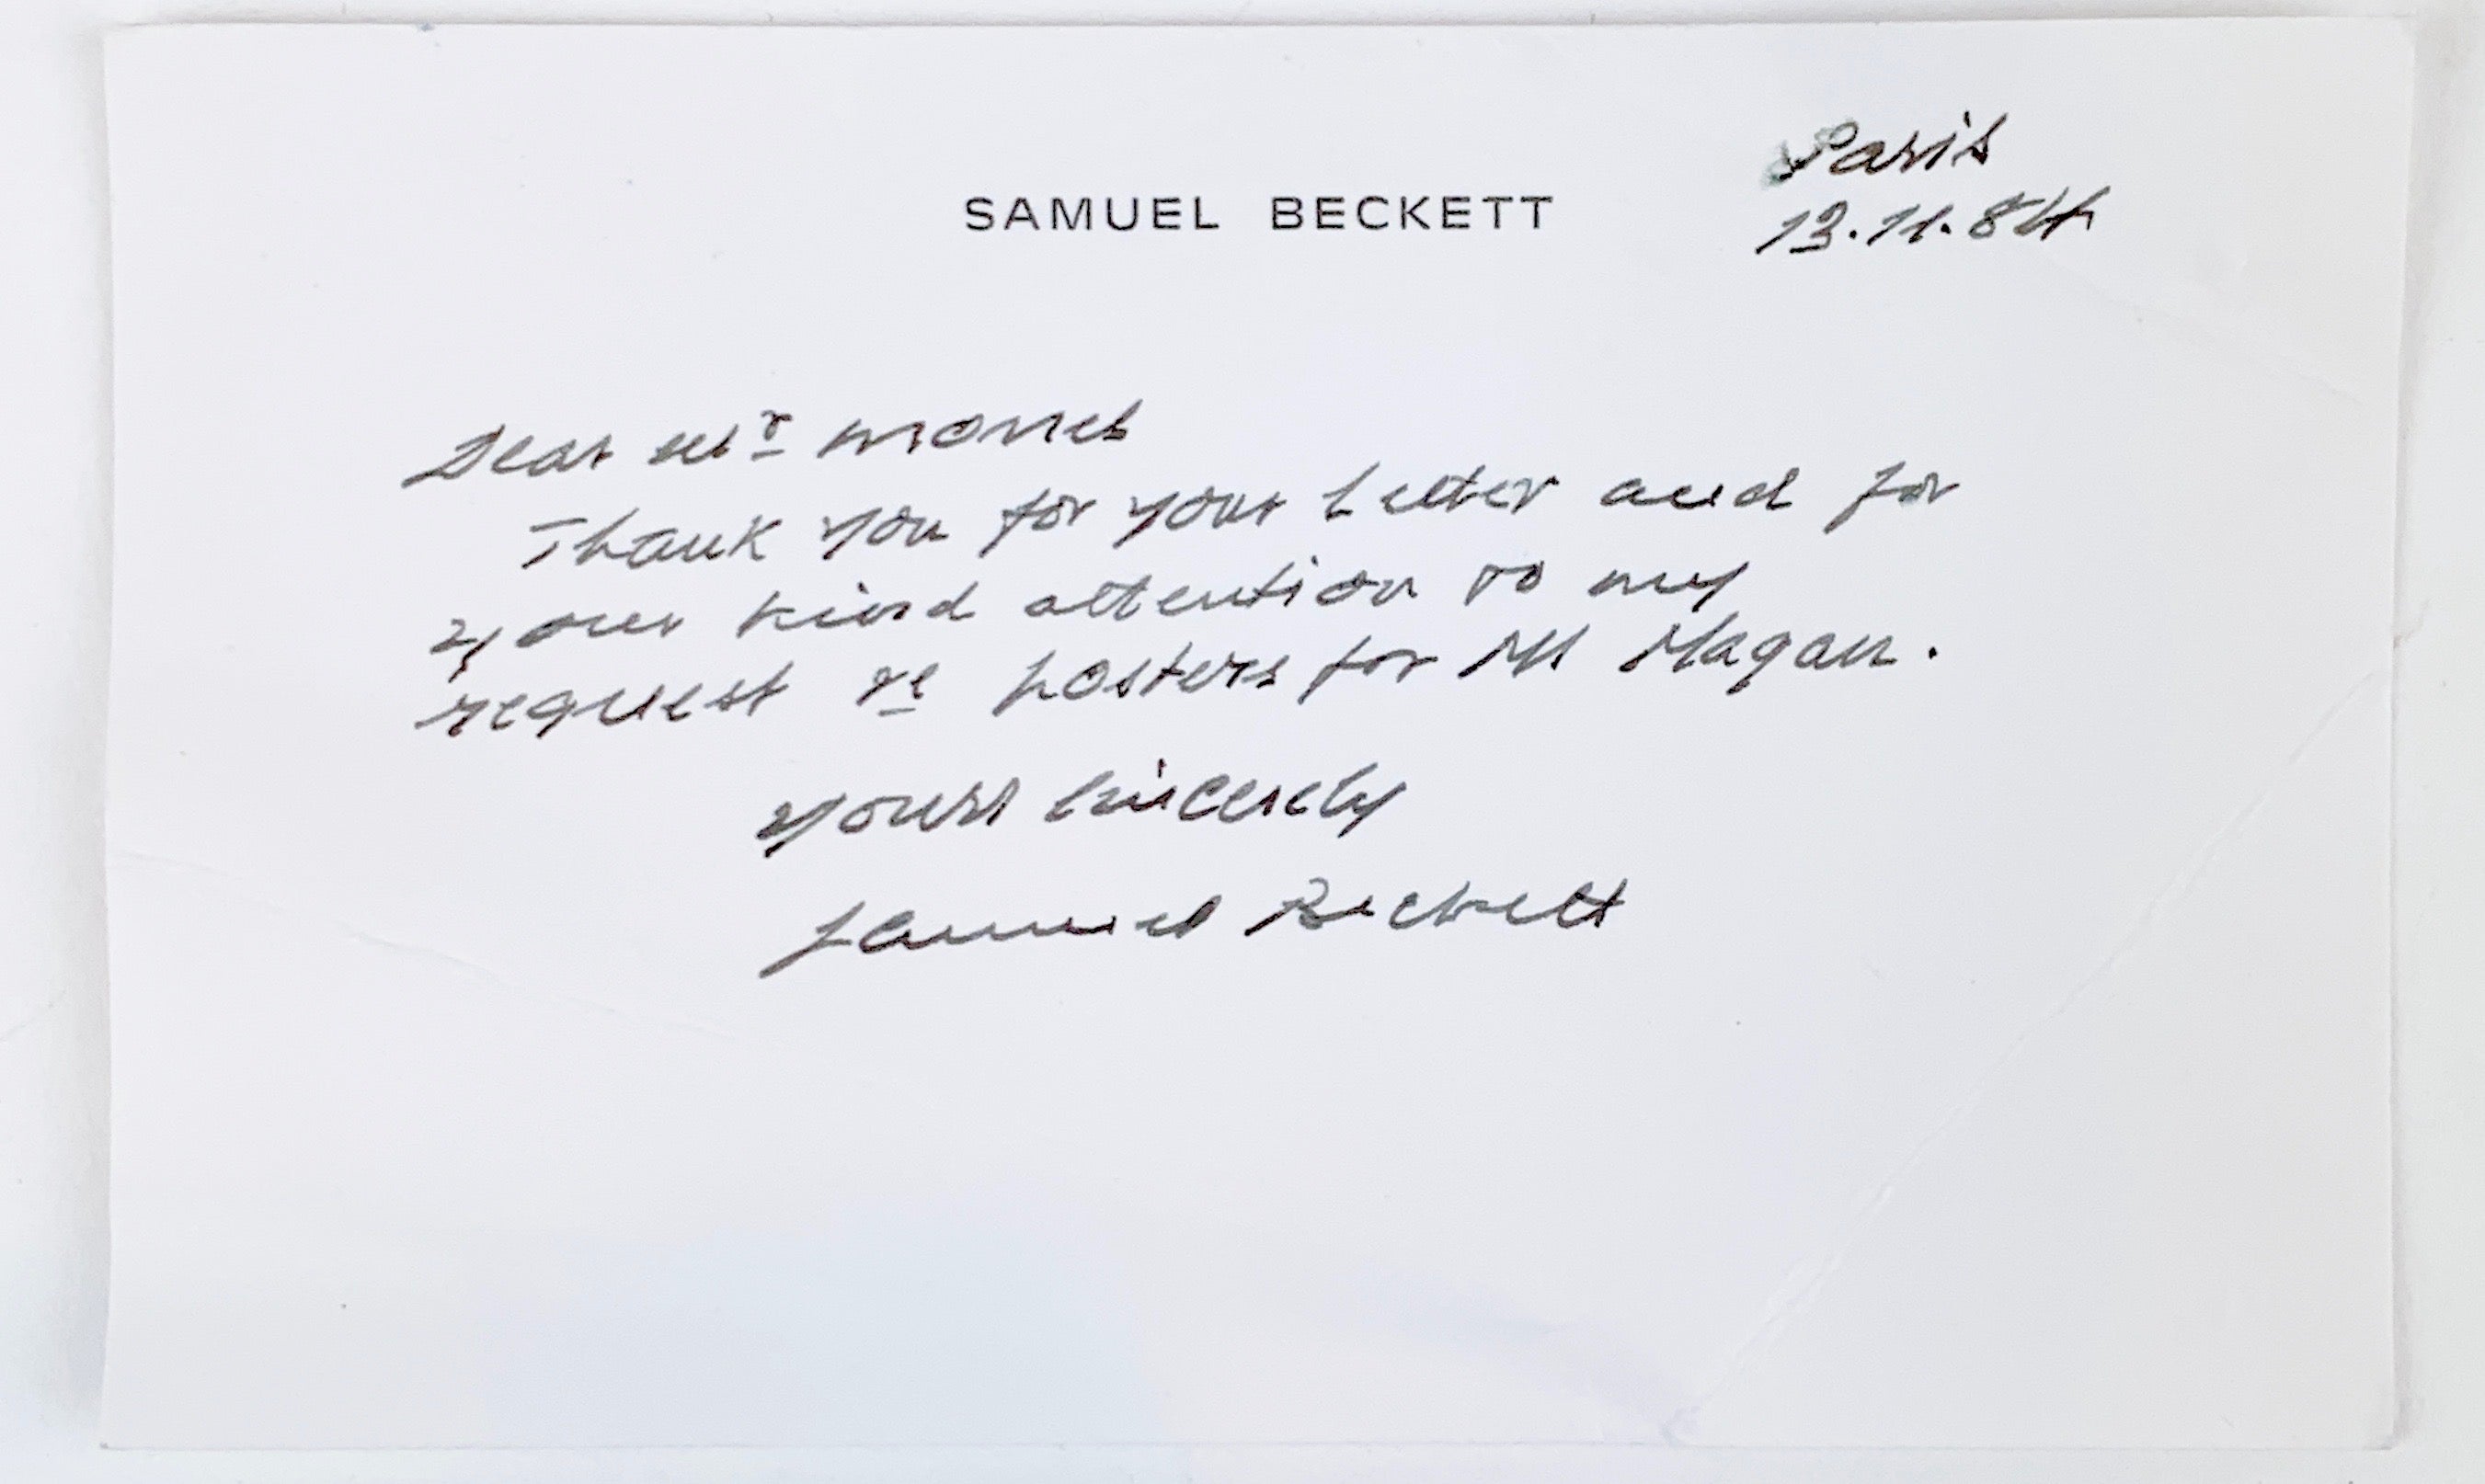 Paris
SAMUEL BECKETT
13.11.84
Dear Mr
Thank you for your letter and for
your kind attention to my
request re posters for Mr Magan.
Yours sincerely
Samuel Beckett